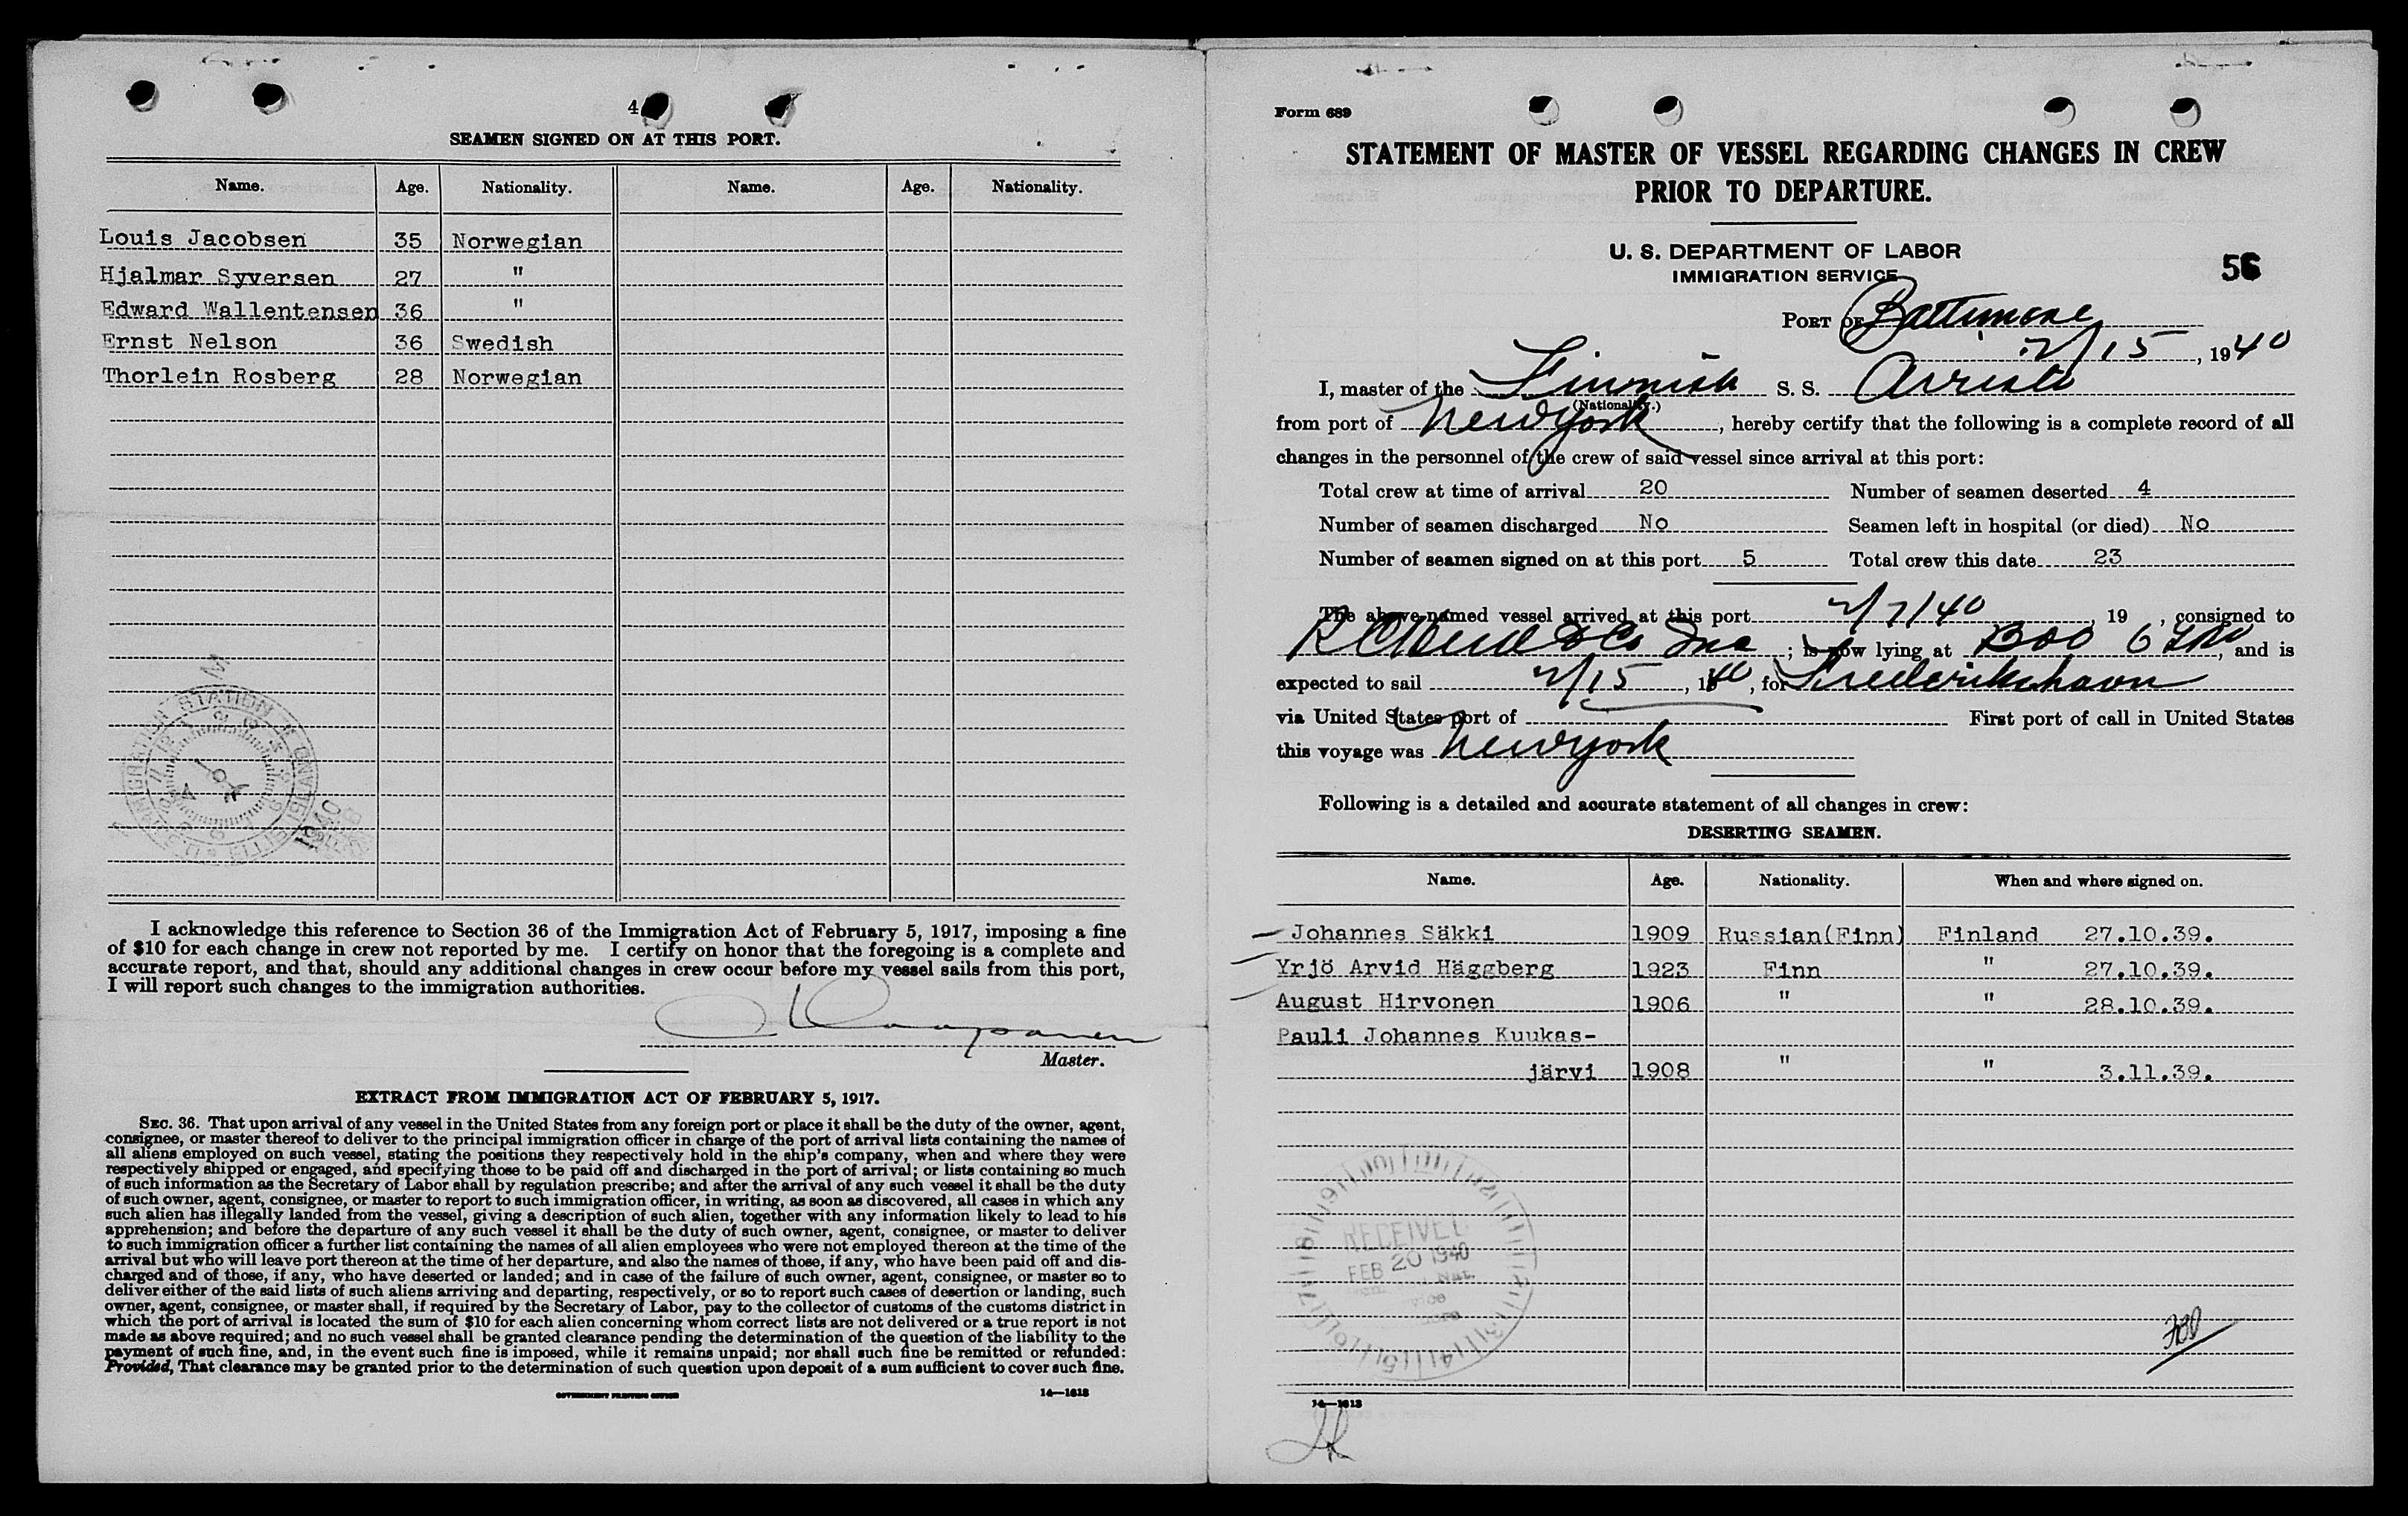 4
SEAMEN SIGNED ON AT THIS PORT.
Name. Age. Nationality. Name. Age. Nationality.
Louis Jacobsen 35 Norwegian
Hjalmar Syversen 27 "
Edward Wallentensen 36 "
Ernst Nelson 36 Swedish
Thorlein Rosberg 28 Norwegian
I acknowledge this reference to Section 36 of the Immigration Act of February 5, 1917, imposing a fine
of $10 for each change in crew not reported by me. I certify on honor that the foregoing is a complete and
accurate report, and that, should any additional changes in crew occur before my vessel sails from this port,
I will report such changes to the immigration authorities.
Master.
EXTRACT FROM IMMIGRATION ACT OF FEBRUARY 5, 1917.
SEC. 36. That upon arrival of any vessel in the United States from any foreign port or place it shall be the duty of the owner, agent,
consignee, or master thereof to deliver to the principal immigration officer in charge of the port of arrival lists containing the names of
all aliens employed on such vessel, stating the positions they respectively hold in the ship's company, when and where they were
respectively shipped or engaged, and specifying those to be paid off and discharged in the port of arrival; or lists containing so much
of such information as the Secretary of Labor shall by regulation prescribe; and after the arrival of any such vessel it shall be the duty
of such owner, agent, consignee, or master to report to such immigration officer, in writing, as soon as discovered, all cases in which any
such alien has illegally landed from the vessel, giving a description of such alien, together with any information likely to lead to his
apprehension; and before the departure of any such vessel it shall be the duty of such owner, agent, consignee, or master to deliver
to such immigration officer a further list containing the names of all alien employees who were not employed thereon at the time of the
arrival but who will leave port thereon at the time of her departure, and also the names of those, if any, who have been paid off and dis-
charged and of those, if any, who have deserted or landed; and in case of the failure of such owner, agent, consignee, or master so to
deliver either of the said lists of such aliens arriving and departing, respectively, or so to report such cases of desertion or landing, such
owner, agent, consignee, or master shall, if required by the Secretary of Labor, pay to the collector of customs of the customs district in
which the port of arrival is located the sum of $10 for each alien concerning whom correct lists are not delivered or a true report is not
made as above required; and no such vessel shall be granted clearance pending the determination of the question of the liability to the
payment of such fine, and, in the event such fine is imposed, while it remains unpaid; nor shall such fine be remitted or refunded:
Provided, That clearance may be granted prior to the determination of such question upon deposit of a sum sufficient to cover such fine.
GOVERNMENT PRINTING OFFICE 14—1613
Form 689
STATEMENT OF MASTER OF VESSEL REGARDING CHANGES IN CREW
PRIOR TO DEPARTURE.
U. S. DEPARTMENT OF LABOR
IMMIGRATION SERVICE
56
PORT OF Baltimore
2/15, 1940
I, master of the Finnish S. S.
(Nationality.)
from port of New York, hereby certify that the following is a complete record of all
changes in the personnel of the crew of said vessel since arrival at this port:
Total crew at time of arrival 20 Number of seamen deserted 4
Number of seamen discharged No Seamen left in hospital (or died) No
Number of seamen signed on at this port 5 Total crew this date 23
The above-named vessel arrived at this port 2/7/40 19 , consigned to
; is now lying at B&O, and is
expected to sail 2/15, 1940, for Frederikshavn
via United States port of First port of call in United States
this voyage was New York
Following is a detailed and accurate statement of all changes in crew:
DESERTING SEAMEN.
Name. Age. Nationality. When and where signed on.
Johannes Säkki 1909 Russian(Finn) Finland 27.10.39.
Yrjö Arvid Häggberg 1923 Finn " 27.10.39.
August Hirvonen 1906 " " 28.10.39.
Pauli Johannes Kuukas-
järvi 1908 " " 3.11.39.
RECEIVED
FEB 20 1940
14—1613